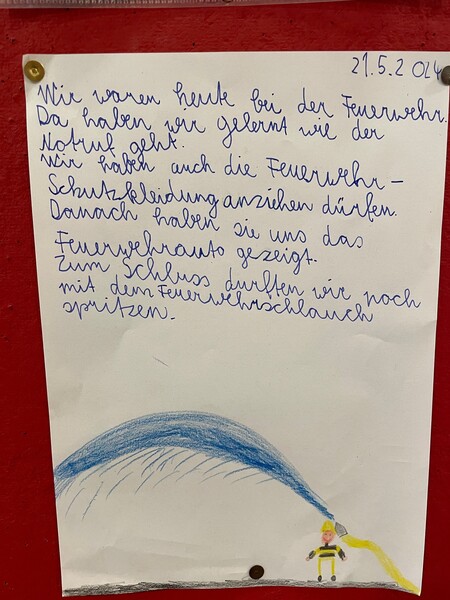 21.5.2024
Wir waren heute bei der Feuerwehr.
Da haben wir gelernt wie der
Notruf geht.
Wir haben auch die Feuerwehr-
Schutzkleidung anziehen dürfen.
Danach haben sie uns das
Feuerwehrauto gezeigt.
Zum Schluss durften wir noch
mit dem Feuerwehrschlauch
spritzen.